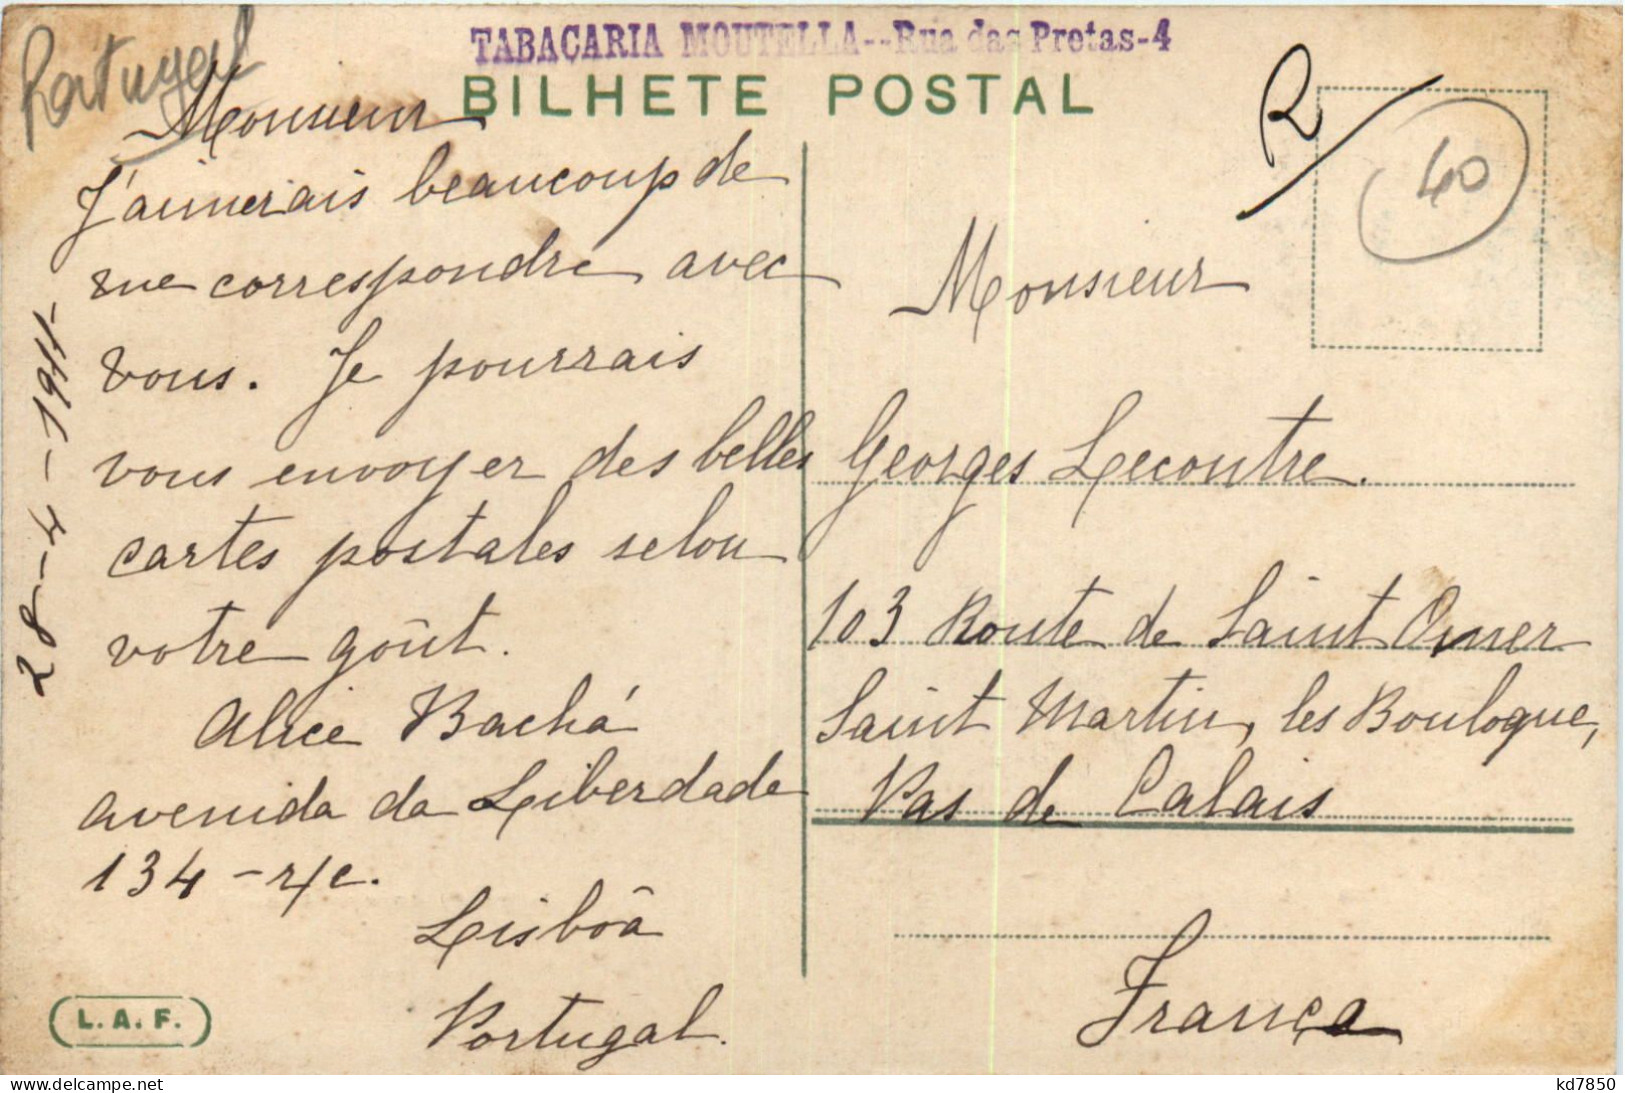 Portugal
TABACARIA MOUTELLA--Rua das Pretas-4
BILHETE POSTAL
R/
40
Monsieur
J'aimerais beaucoup de
me correspondre avec
vous. Je pourrais
vous envoyer des belles
cartes postales selon
votre goût.
Alice Bachá
avenida da Liberdade
134 - r/c.
Lisbôa
Portugal.
28-4-1911-
Monsieur
Georges Lecontre.
103 Route de Saint Omer
Saint Martin, les Boulogne,
Pas de Calais
França
L. A. F.
kd7850